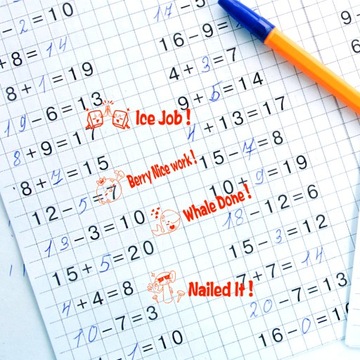 -2=10
+8=14
=19
19-6=13
8+9=17
8+7=15
12-5=7
13-3=10
15+5=20
4+4=8
10-7=3
16-9=7
4+3=7
9+5=14
4+13=17
15-7=8
10+9=19
18-12=6
15-3=12
7+7=14
20-7=13
16-0=
Ice Job!
Berry Nice work!
Whale Done!
Nailed It!